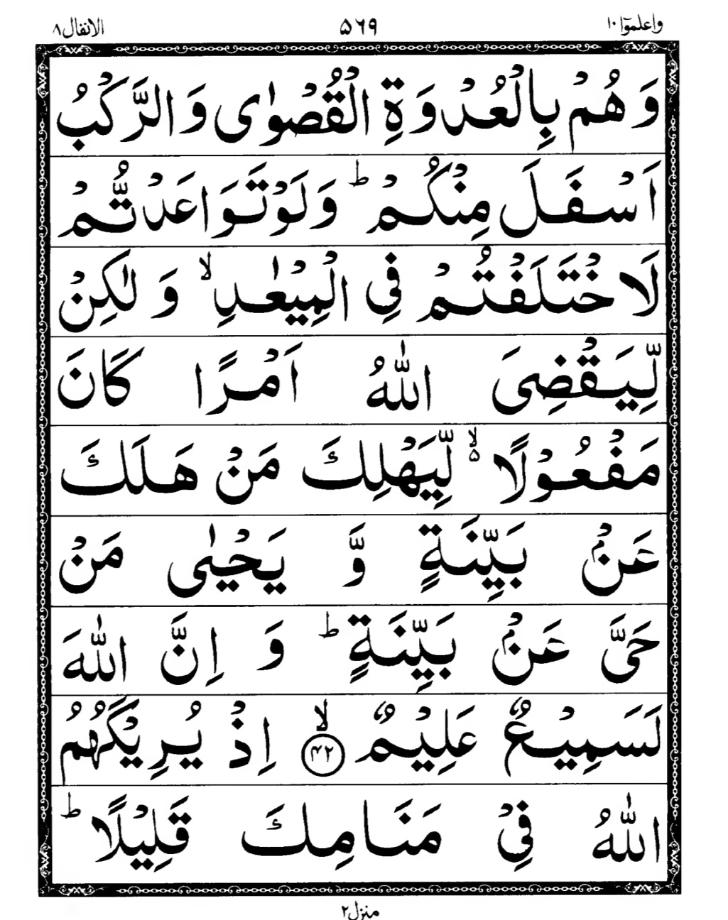 واعلموا١٠ ۵٦۹ الانفال٨
وَهُمْ بِالْعُدْوَةِ الْقُصْوٰى وَالرَّكْبُ
اَسْفَلَ مِنْكُمْ ؕ وَلَوْ تَوَاعَدْتُّمْ
لَاخْتَلَفْتُمْ فِى الْمِيْعٰدِ ۙ وَ لٰكِنْ
لِّيَقْضِىَ اللّٰهُ اَمْرًا كَانَ
مَفْعُوْلًا ۙ۵ لِّيَهْلِكَ مَنْ هَلَكَ
عَنْۢ بَيِّنَةٍ وَّ يَحْيٰى مَنْ
حَىَّ عَنْۢ بَيِّنَةٍ ؕ وَ اِنَّ اللّٰهَ
لَسَمِيْعٌ عَلِيْمٌ ۙ ﴿۴۲﴾ اِذْ يُرِيْكَهُمُ
اللّٰهُ فِىْ مَنَامِكَ قَلِيْلًا ؕ
منزل٢